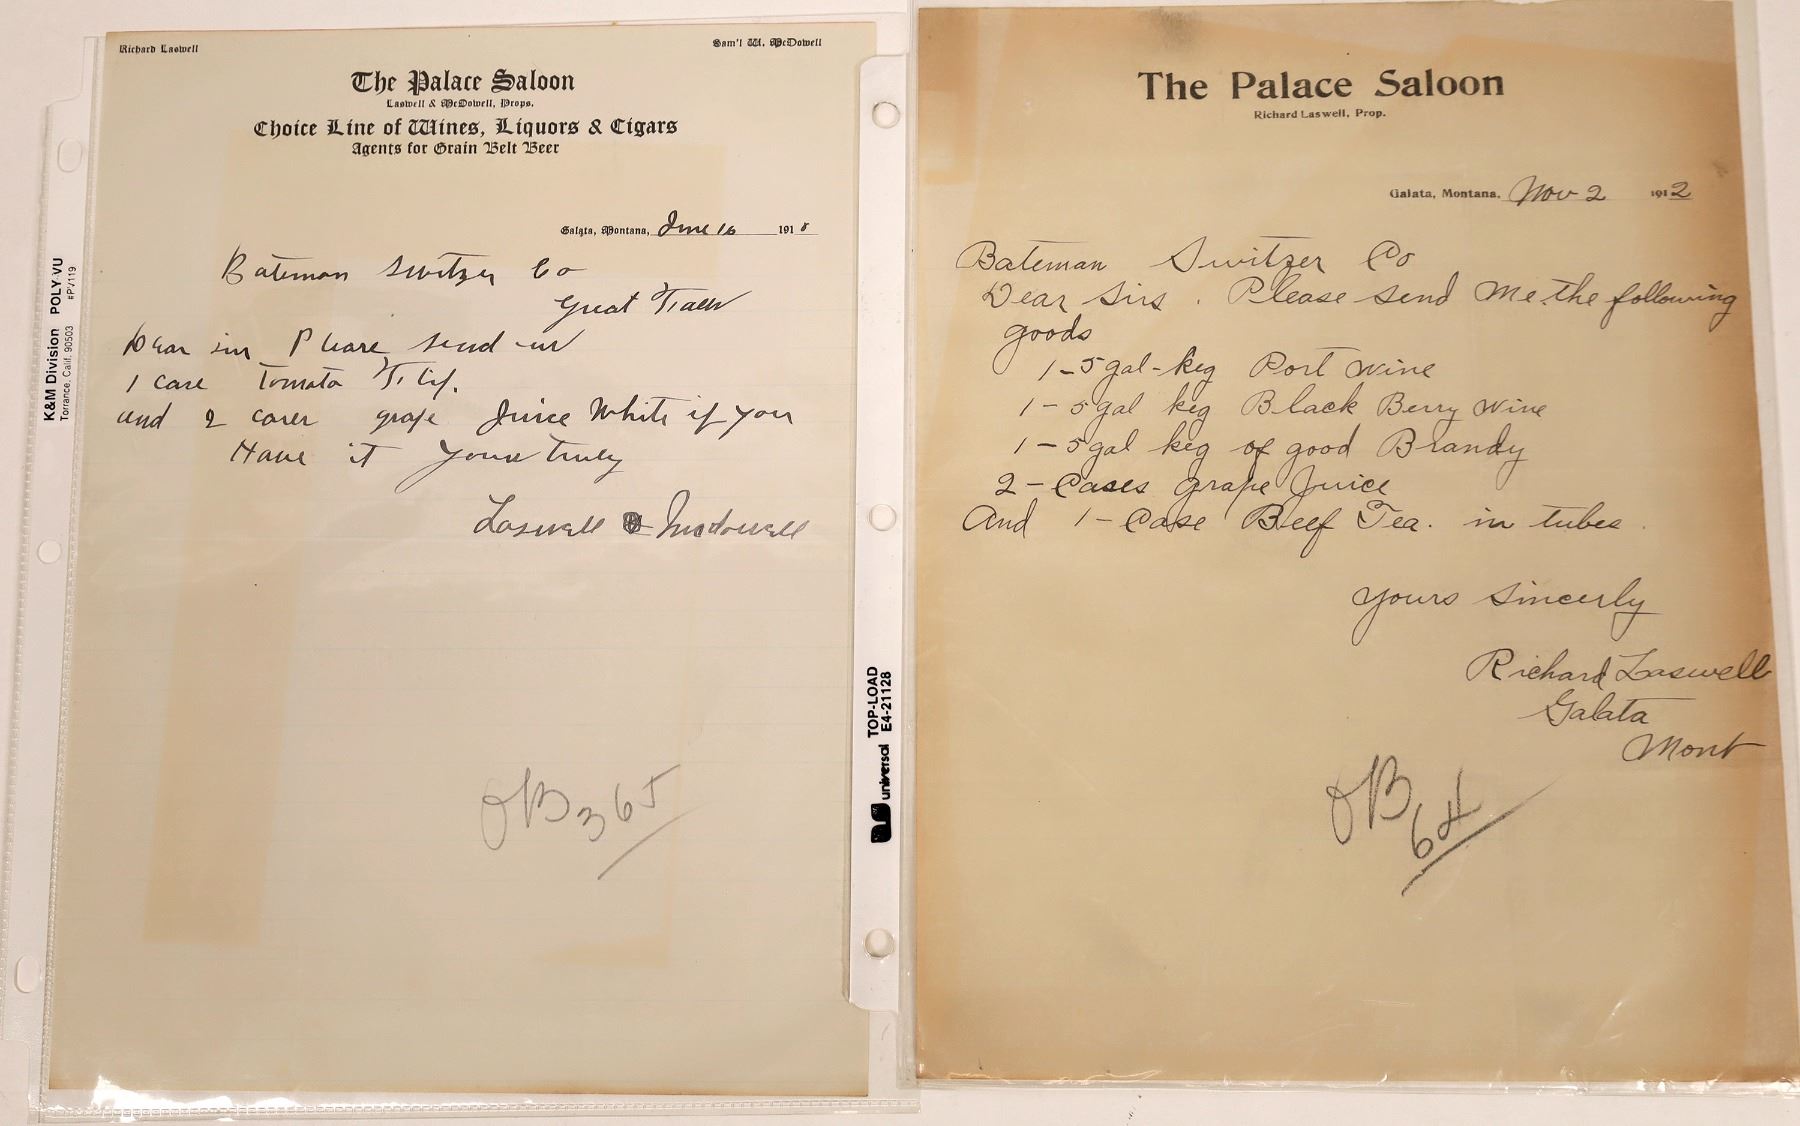 Richard Laswell
Sam'l W. McDowell
The Palace Saloon
Laswell & McDowell, Props.
Choice Line of Wines, Liquors & Cigars
Agents for Grain Belt Beer
Galata, Montana, June 16 191
Bateman Switzer Co
Great Falls
Dear sir Please send us
1 case Tomato
and 2 cases grape Juice White if you
Have it Yours truly
Laswell & McDowell
OB 365
K&M Division POLY-VU
Torrance, Calif. 90503 #PV119
universal TOP-LOAD
E4-21128
The Palace Saloon
Richard Laswell, Prop.
Galata, Montana, Nov 2 1912
Bateman Switzer Co
Dear Sirs. Please send Me the following
goods
1-5 gal-keg Port wine
1-5 gal keg Black Berry wine
1-5 gal keg of good Brandy
2-Cases grape Juice
And 1-Case Beef Tea. in tubes.
yours sincerly
Richard Laswell
Galata
Mont
OB 64